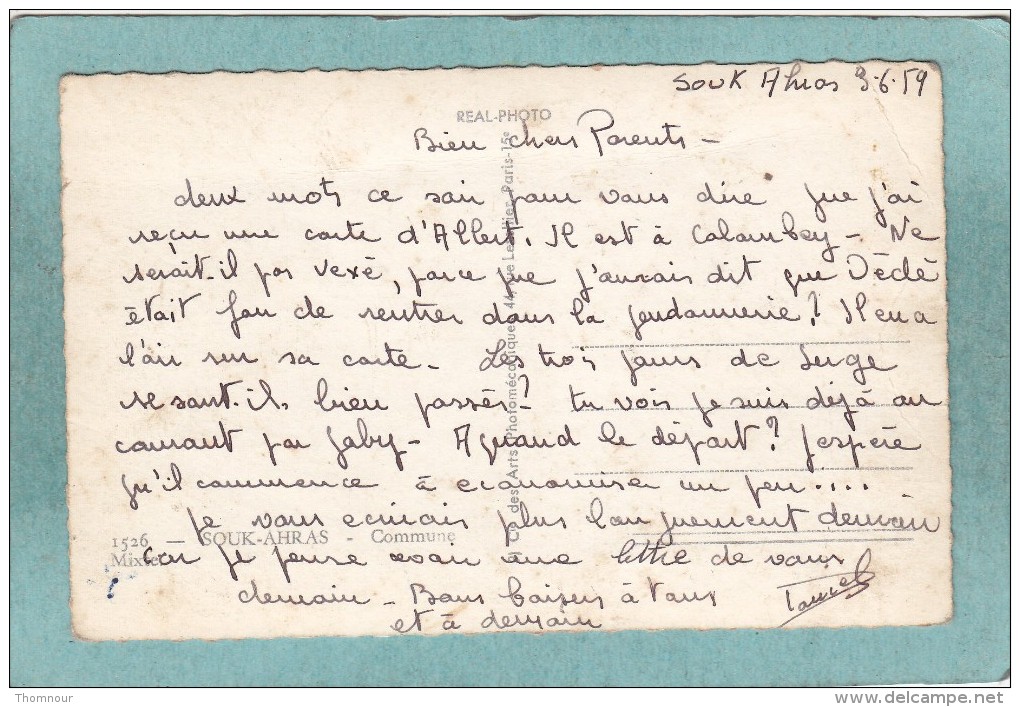 Souk Ahras 3.6.59
REAL-PHOTO
Bien chers Parents -
deux mots ce soir pour vous dire que j'ai
reçu une carte d'Albert. Il est à Colombey - Ne
serait-il pas vexé, parce que j'aurais dit que Dédé
était fou de rentrer dans la gendarmerie? Il en a
l'air sur sa carte. Les trois jours de Serge
se sont-ils bien passés? tu vois je suis déjà au
courant par Gaby - A quand le départ? J'espère
qu'il commence à économiser un peu....
Je vous écrirais plus longuement demain
1526 — SOUK-AHRAS - Commune
Mixte
car je pense avoir une lettre de vous
demain - Bons baisers à tous
et à demain
Cie des Arts Photomécaniques, 44, rue Letellier, Paris-15e
Thomnour
www.delcampe.net